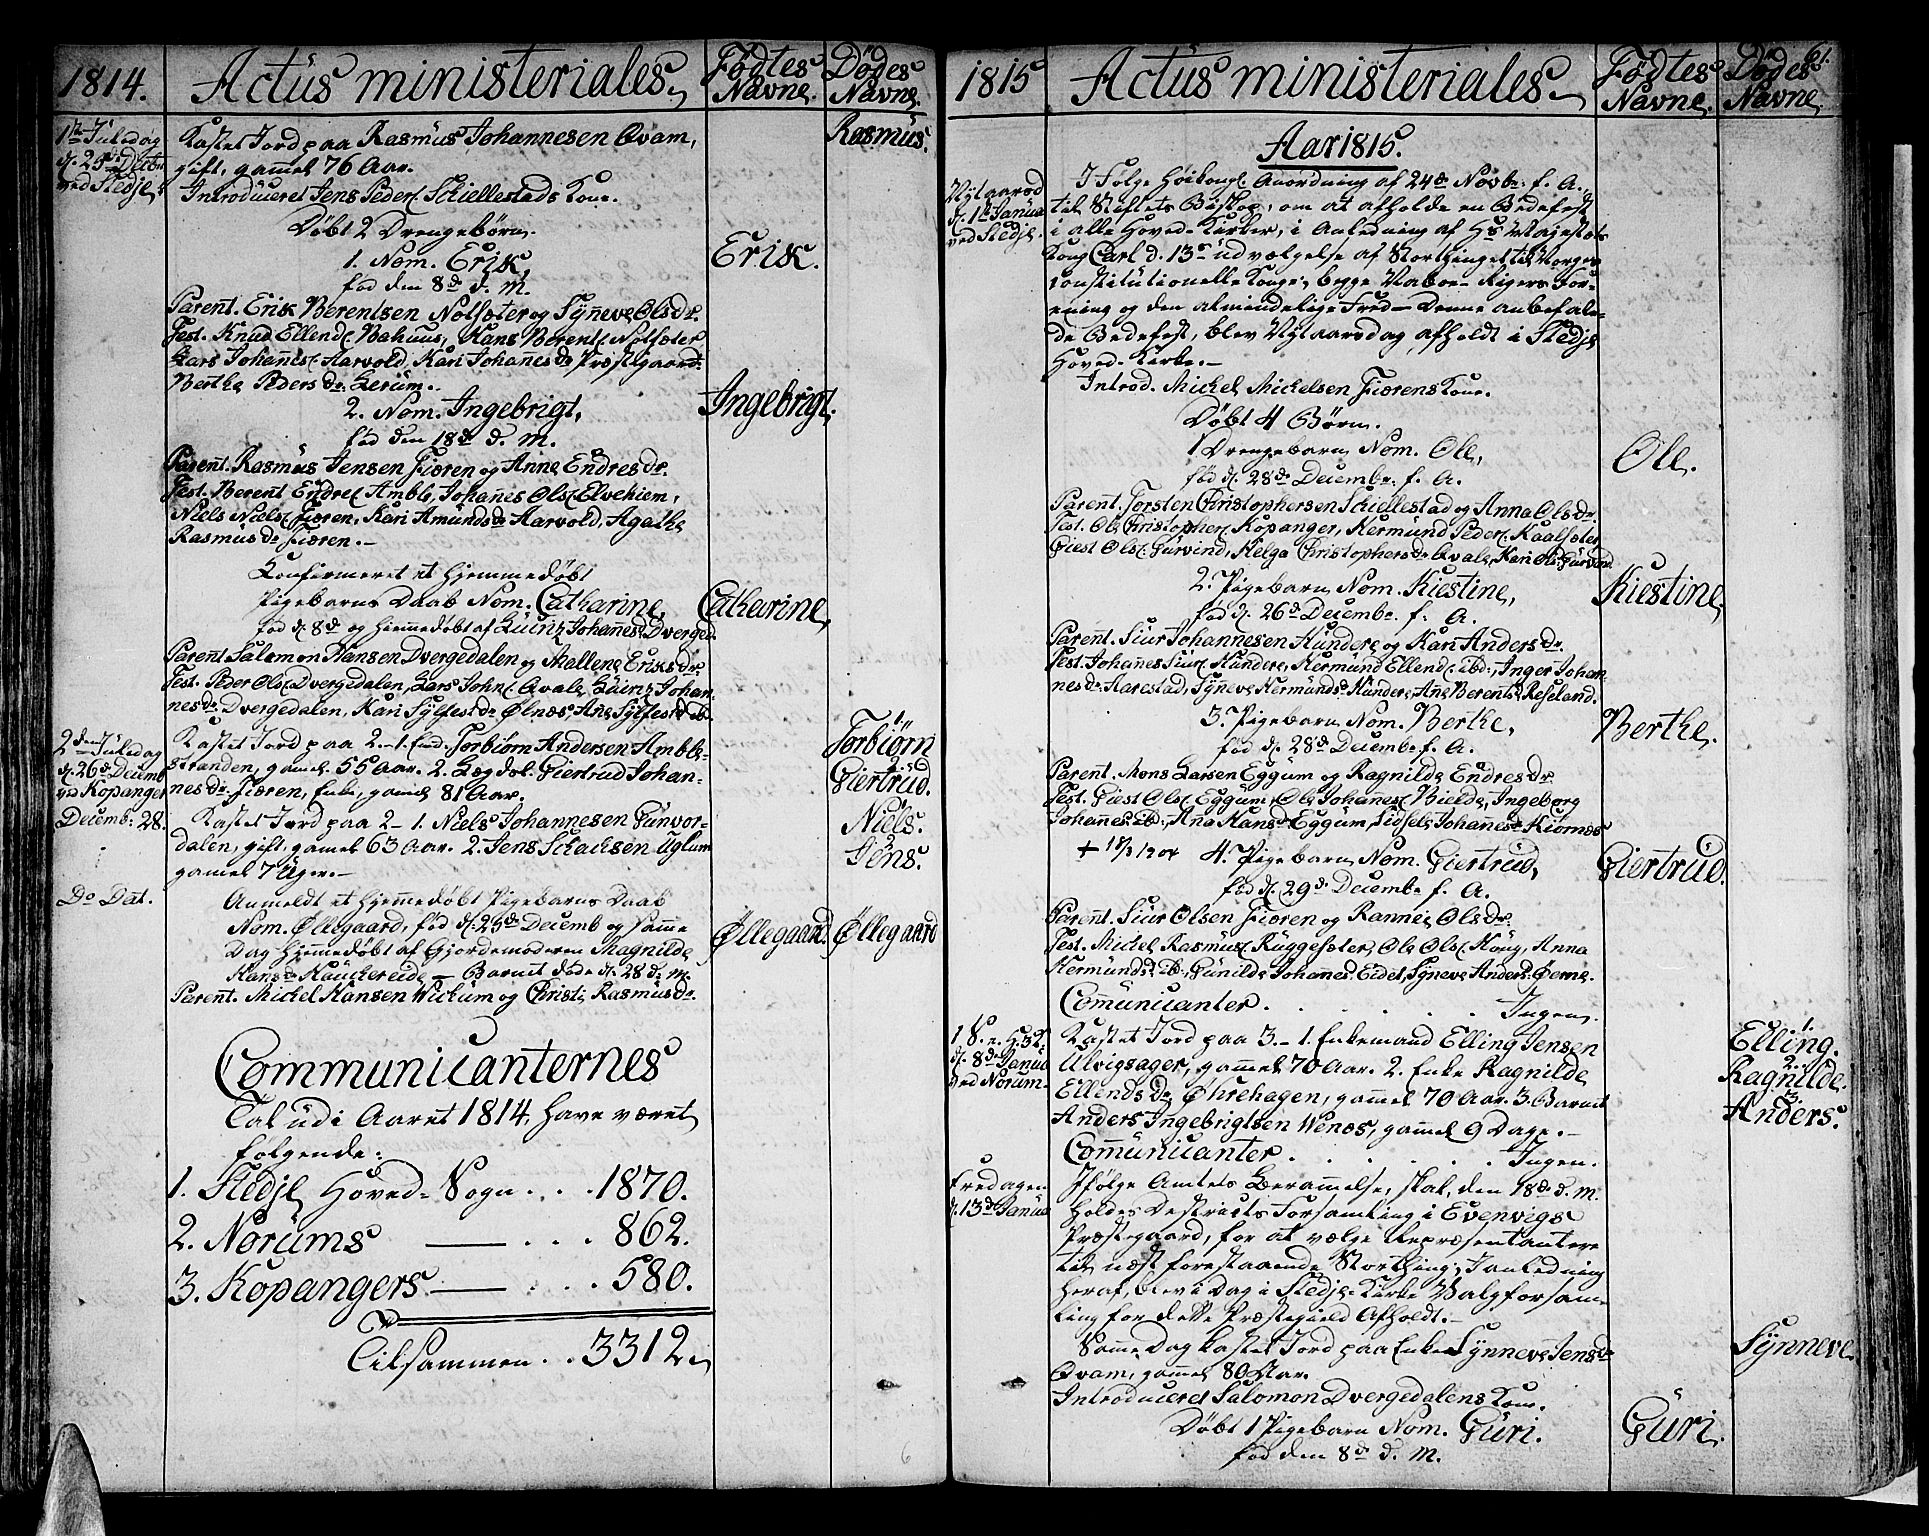 1814. Actus ministeriales. Fødtes Navne. Dødes Navne.
1ste Juledag d. 25de Decbr. ved Stedje.
Kastet Jord paa Rasmus Johannesen Qvam, Rasmus.
gift, gammel 76 Aar.
Introduceret Jens Peders. Schiellestads Kone.
Døbt 2 Drengebørn.
1. Nom. Erik, Erik.
fød den 8de d. M.
Parent. Erik Berentsen Nolsæter og Synneve Olsdr.
Test. Knud Ellends. Bahuus, Hans Berents. Nolsæter
Lars Johannes. Aarvold, Kari Johannesdr. Præstegaard.
Berthe Pedersdr. Lerum.
2. Nom. Ingebrigt, Ingebrigt.
fød den 18de d. M.
Parent. Rasmus Jensen Fiæren og Anne Endresdr.
Test. Berent Endres. Amble, Johannes Ols. Elvehiem,
Niels Niels. Fiæren, Kari Amundsdr. Aarvold, Agathe
Rasmusdr. Fiæren.
Konfirmeret et hjemmedøbt
Pigebarns Daab Nom. Catharine, Catharine,
fød d. 8de og hjemmedøbt af Johannesdr. Dverged.
Parent. Salomon Hansen Dvergedalen og Mallene Eriksdr.
Test. Peder Ols. Dvergedalen, Lars Johns. Qvale, Johan-
nesdr. Dvergedalen, Kari Sylfestdr. Ølnæs, Ane Sylfestdr. ib.
2den Juledag d. 26de Decemb. ved Kopanger
Kastet Jord paa 2 - 1. Torbiørn Andersen Amble- 1. Torbiørn
stranden, gamel 55 Aar. 2. Lægdsl. Giertrud Johan- 2. Giertrud.
nesdr. Fiæren, Enke, gamel 81 Aar.
Decemb: 28.
Kastet Jord paa 2 - 1. Niels Johannesen Gunvor- Niels.
dalen, gift, gamel 63 Aar. 2. Jens Schacksen Uglum Jens.
gamel 7 Uger.
Do Dat.
Anmeldt et hjemmedøbt Pigebarns Daab
Nom. Øllegaard, fød d. 25de Decemb og samme Øllegaard. Øllegaard
Dag hjemmedøbt af Gjordemoderen Magnilde
Hansdr. Hauckereide - Barnet døde d. 28 d. M.
Parent. Michel Hansen Wickum og Christi Rasmusdr.
Communicanternes
Tal udi Aaret 1814, have været
følgende:
1. Stedje Hoved-Sogn . . . 1870.
2. Norums — . . . 862.
3. Kopangers — . . . 580.
Tilsammen . . 3312.
1815 Actus ministeriales. Fødtes Navne. Dødes Navne. 61.
Aar 1815.
Nytaarsd d. 1ste Januar ved Stedje.
I Følge høikongl. Anordning af 24de Novbr. f. A.,
til Stiftets Biskop, om at afholde en Bedefest
i alle Hoved-Kirker, i Anledning af Hs Majestæts
Kong Carl d. 13des udvælgelse af Storthinget til Norges
constitutionelle Konge, begge Naboe-Rigers For-
ening og den almindelige Fred - Denne anbefale-
de Bedefest, blev Nytaarsdag afholdt i Stedje
Hoved-Kirke.-
Introd. Michel Michelsen Fiærens Kone.
Døbt 4 Børn.
1 Drengebarn Nom. Ole, Ole.
fød d. 28de Decembr. f. A.
Parent. Torsten Christophersen Schiellestad og Anna Olsdr.
Test. Ole Christophers. Kopanger, Hermund Peders. Kaalsæter
Giest Ols. Gurvind, Helga Christophersdr. Qvale, Kari Olsdr. Gurvind.
2. Pigebarn Nom. Kiestine, Kiestine,
fød d. 26de Decembr. f. A.
Parent. Siur Johannesen Hundere og Kari Andersdr.
Test. Johannes Siurs. Hundere, Hermund Ellends. ibd., Inger Johan-
nesdr. Aarestad, Synneve Hermundsdr. Hundere, Ane Berentsdr. Reseland.
3. Pigebarn Nom. Berthe, Berthe.
fød d. 28de Decembr. f. A.
Parent. Mons Larsen Eggum og Ragnilde Endresdr.
Test. Giest Ols. Eggum, Ole Johannes. Bielde, Ingeborg
Johannesdr. ibd., Ana Hansdr. Eggum, Sidsele Johannesdr. Kiornæs
+ 18/3 1904 4. Pigebarn Nom. Giertrud, Giertrud.
fød d. 29de Decembr. f. A.
Parent. Siur Olsen Fiæren og Rannei Olsdr.
Test. Michel Rasmus. Ruggesæter, Ole Ols. Houg, Anna
Hermundsdr. ib., Gunilde Johanesdr. Eidet, Synneve Andersdr. Øerne.
Communicanter . . . . . Ingen.
1 S. e. H. 3 K. d. 8de Januar ved Norum.
Kastet Jord paa 3. - 1. Enkemand Elling Jensen 1. Elling.
Ulvigsager, gammel 70 Aar. 2. Enke Ragnilde 2. Ragnilde.
Ellendsdr. Øhrehagen, gammel 70 Aar. 3. Barnet 3. Anders.
Anders Ingebrigtsen Wenæs, gamel 9 Dage.-
Communicanter . . . . . Ingen.
Fredagen d. 13de Januar
Ifølge Amtets Berammelse, skal, den 18de d. M.
holdes Destricts Forsamling i Evenvigs
Præstegaard, for at vælge Repræsentantere
til næst forestaaende Storthing; I anledning
heraf, blev i Dag i Stedje-Kirke Valgforsam-
ling for dette Præstegield Afholdt.-
Samme Dag kastet Jord paa Enken Synneve Jensdr. Synneve.
Qvam, gammel 80 Aar.
Introduceret Salomon Dvergedalens Kone.
Døbt 1 Pigebarn Nom. Guri. Guri.
fød den 8de d. M.